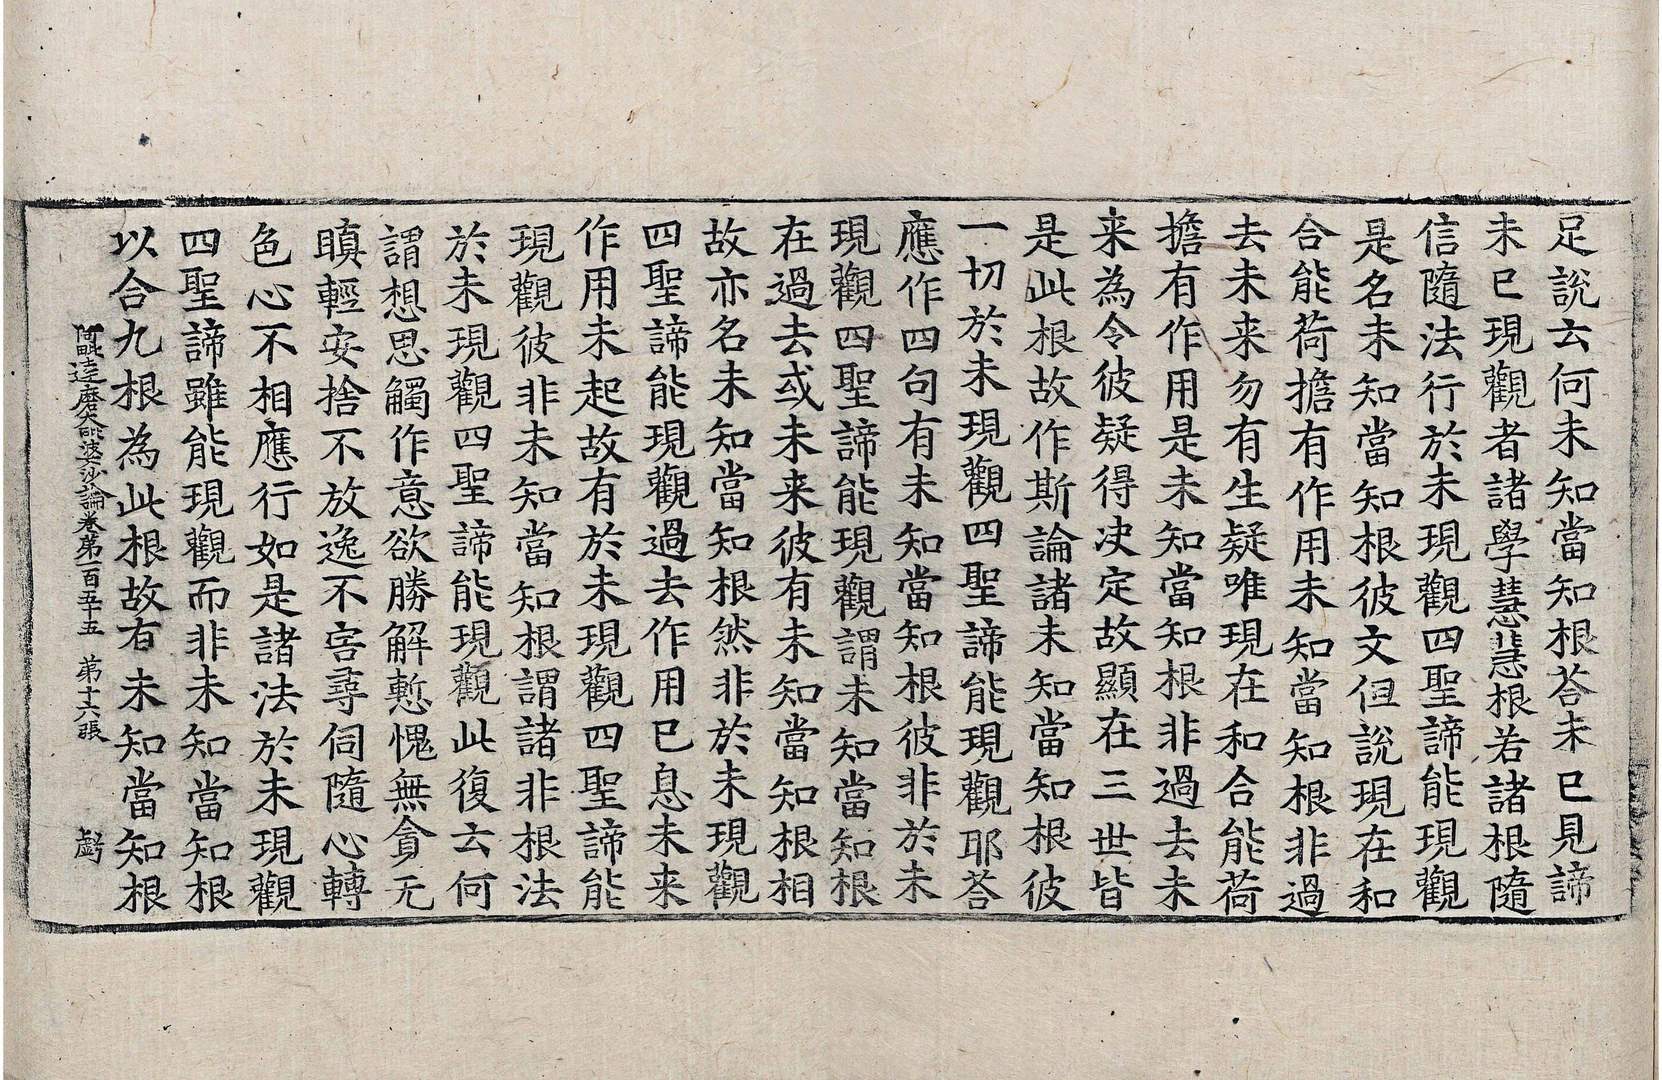 足說云何未知當知根荅未已見諦
未已現觀者諸學慧慧根若諸根隨
信隨法行於未現觀四聖諦能現觀
是名未知當知根彼文但說現在和
合能荷擔有作用未知當知根非過
去未来勿有生疑唯現在和合能荷
擔有作用是未知當知根非過去未
来為令彼疑得决定故顯在三世皆
是此根故作斯論諸未知當知根彼
一切於未現觀四聖諦能現觀耶荅
應作四句有未知當知根彼非於未
現觀四聖諦能現觀謂未知當知根
在過去或未来彼有未知當知根相
故亦名未知當知根然非於未現觀
四聖諦能現觀過去作用已息未来
作用未起故有於未現觀四聖諦能
現觀彼非未知當知根謂諸非根法
於未現觀四聖諦能現觀此復云何
謂想思觸作意欲勝解慙愧無貪无
瞋輕安捨不放逸不害尋伺隨心轉
色心不相應行如是諸法於未現觀
四聖諦雖能現觀而非未知當知根
以合九根為此根故有未知當知根
阿毗達磨大毗婆沙論卷第一百四十五　第十六張　𡔷